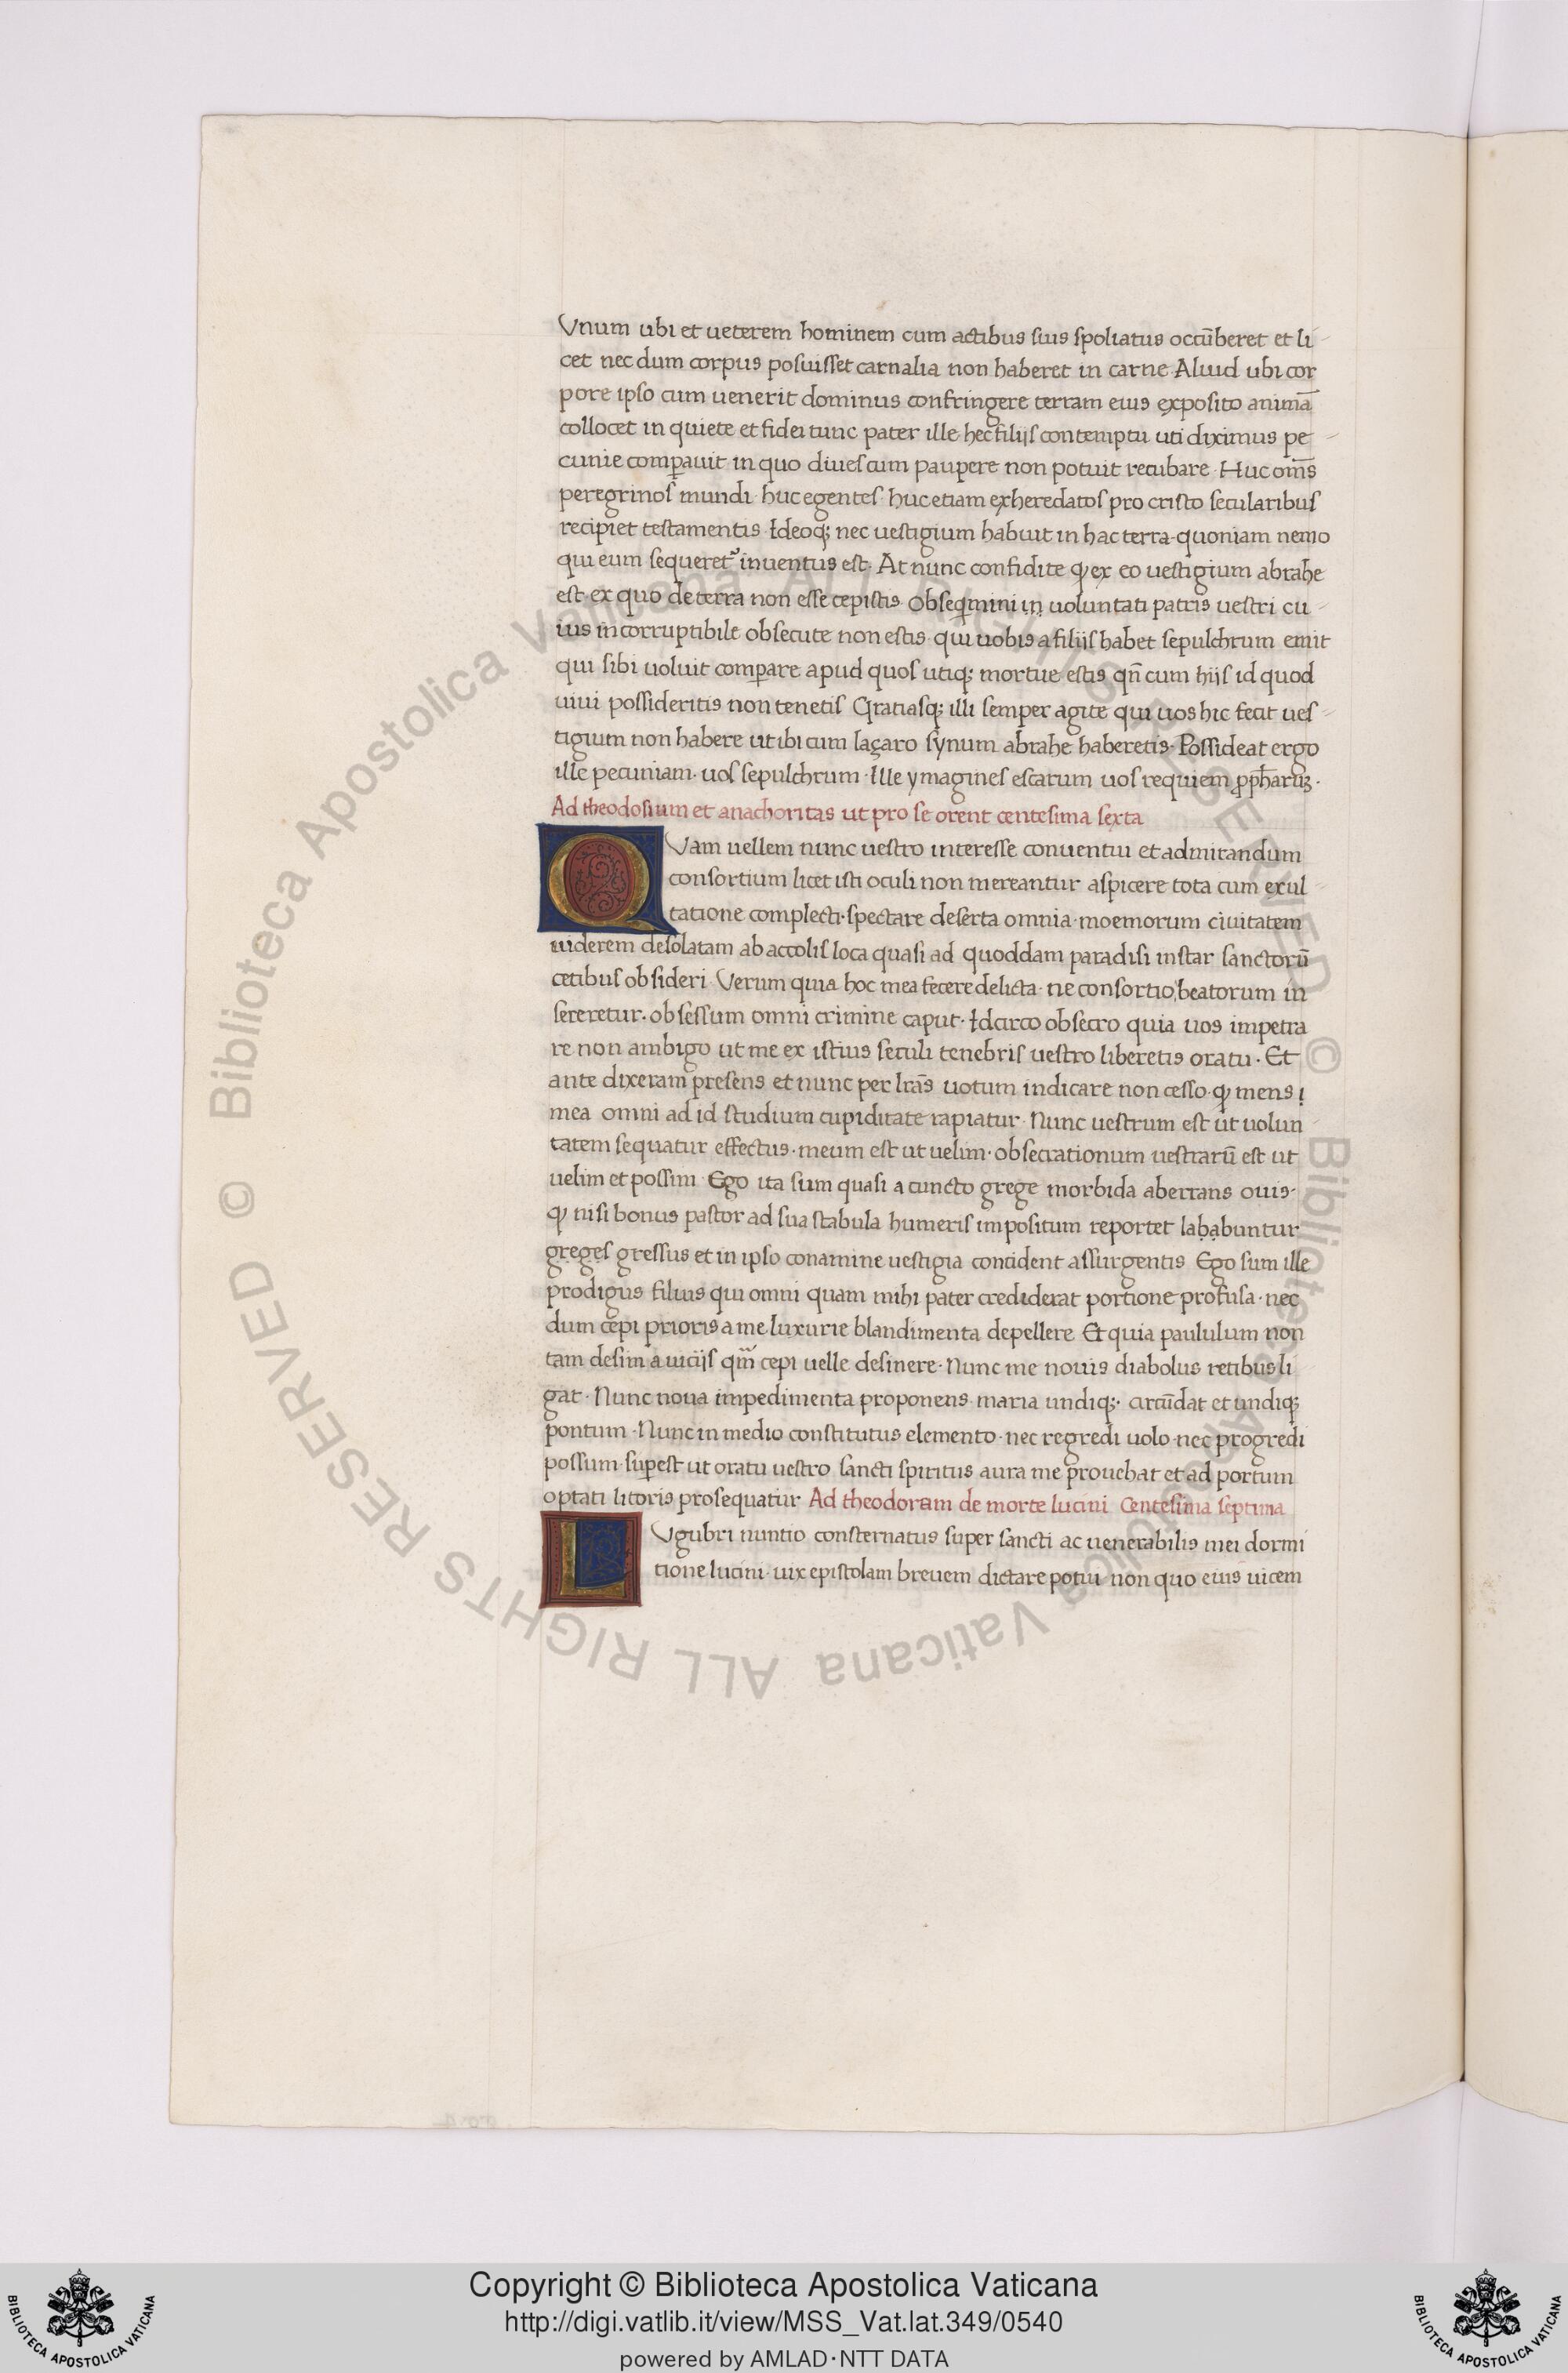 Vnum ubi et ueterem hominem cum actibus suis spoliatus occūberet et li
cet nec dum corpus posuisset carnalia non haberet in carne Aliud ubi cor
pore ipso cum uenerit dominus confringere terram eius exposito animā
collocet in quiete et fidei tunc pater ille hec filijs contemptu uti diximus pe
cunie comꝑauit in quo diues cum paupere non potuit recubare · Huc om̄s
peregrinos mundi huc egentes · huc etiam exheredatos pro cristo secularibus
recipiet testamentis · Ideoq; nec uestigium habuit in hac terra quoniam nemo
qui eum sequeret᷑ inuentus est · At nunc confidite ꝙ ex eo uestigium abrahe
est ex quo de terra non esse cepistis obseq̄mini in uoluntati patris uestri cu
ius incorruptibile obsecute non estis · qui uobis a filijs habet sepulchrum emit
qui sibi uoluit comꝑare apud quos utiq; mortue estis qn̄ cum hijs id quod
uiui possideritis non tenetis Gratiasq; illi semper agite qui uos hic fecit ues
tigium non habere ut ibi cum laçaro synum abrahe haberetis · Possideat ergo
ille pecuniam · uos sepulchrum · Ille ymagines escarum uos requiem ꝓph̄arūꝫ ·
Ad theodosium et anachoritas ut pro se orent centesima sexta
QVam uellem nunc uestro interesse conuentui et admirandum
consortium licet isti oculi non mereantur aspicere tota cum exul
tatione complecti · spectare deserta omnia · moemorum ciuitatem
uiderem desolatam ab accolis loca quasi ad quoddam paradisi instar sanctorū
cetibus obsideri · Verum quia hoc mea fecere delicta · ne consortio beatorum in
sereretur · obsessum omni crimine caput · Idcirco obsecro quia uos impetra
re non ambigo ut me ex istius seculi tenebris uestro liberetis oratu · Et
ante dixeram presens et nunc per lr̄as uotum indicare non cesso · ꝙ mens i
mea omni ad id studium cupiditate rapiatur · Nunc uestrum est ut uolun
tatem sequatur effectus · meum est ut uelim · obsecrationum uestrarū est ut
uelim et possim · Ego ita sum quasi a cuncto grege morbida aberrans ouis ·
ꝙ nisi bonus pastor ad sua stabula humeris impositum reportet lababuntur
greges gressus et in ipso conamine uestigia concident assurgentis Ego sum ille
prodigus filius qui omni quam mihi pater crediderat portione profusa · nec
dum cepi prioris a me luxurie blandimenta depellere Et quia paululum non
tam desim a uicijs qm̄ cepi uelle desinere · Nunc me nouis diabolus retibus li
gat · Nunc noua impedimenta proponens maria undiq; · circūdat et undiq;
pontum · Nunc in medio constitutus elemento · nec regredi uolo · nec progredi
possum · suꝑest ut oratu uestro sancti spiritus aura me prouehat et ad portum
optati litoris prosequatur Ad theodoram de morte lucini Centesima septima
LVgubri nuntio consternatus super sancti ac uenerabilis mei dormi
tione lucini · uix epistolam breuem dictare potui non quo eius uicem
Copyright © Biblioteca Apostolica Vaticana
http://digi.vatlib.it/view/MSS_Vat.lat.349/0540
powered by AMLAD·NTT DATA
BIBLIOTECA APOSTOLICA VATICANA
BIBLIOTECA APOSTOLICA VATICANA
© Biblioteca Apostolica Vaticana ALL RIGHTS RESERVED © Biblioteca Apostolica Vaticana ALL RIGHTS RESERVED